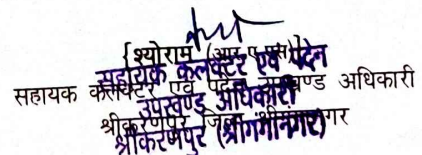 {श्योराम (आर.ए.एस)}
सहायक कलक्टर एवं पदेन
सहायक कलक्टर एवं पदेन उपखण्ड अधिकारी
उपखण्ड अधिकारी
श्रीकरणपुर जिला श्रीगंगानगर
श्रीकरणपुर (श्रीगंगानगर)